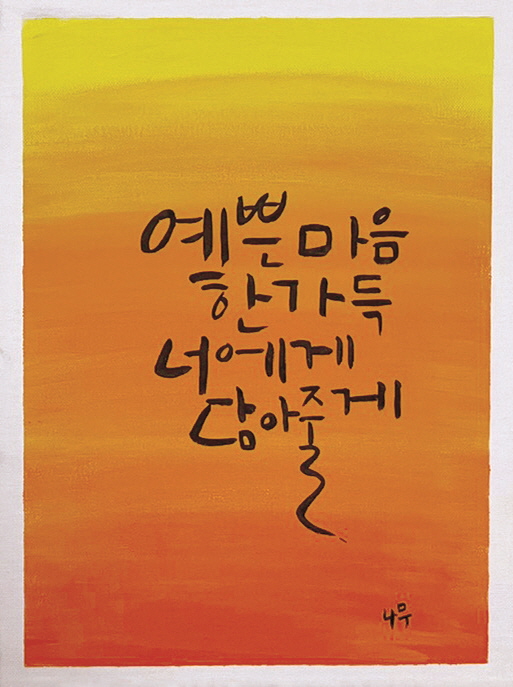 예쁜 마음
한가득
너에게
담아줄게
나무